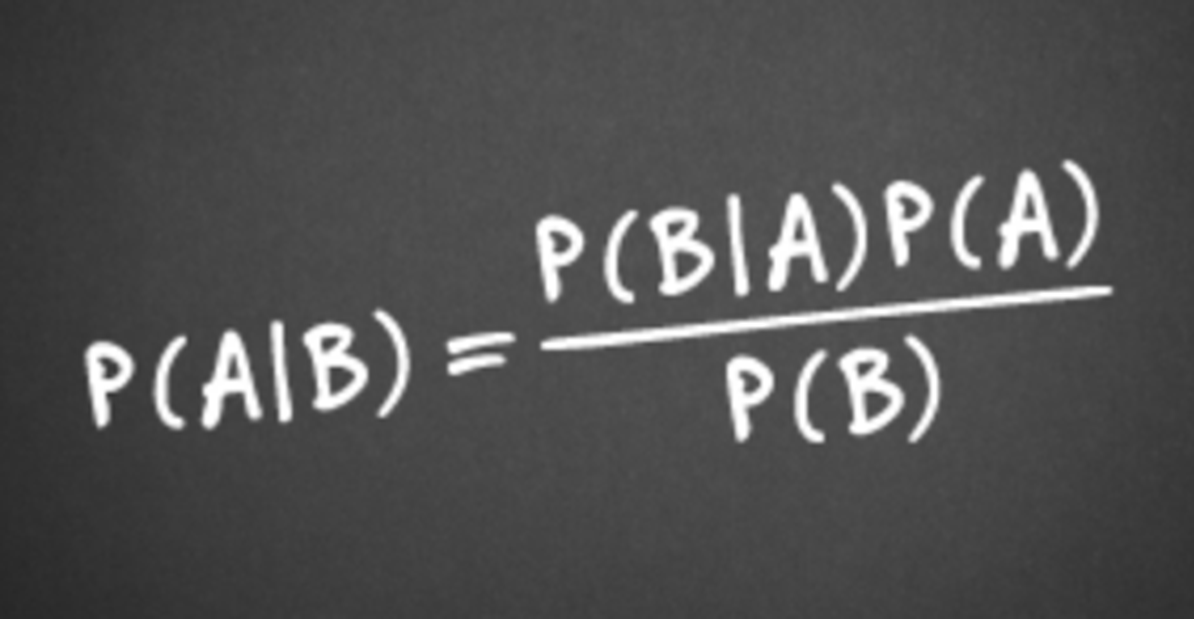 P(A|B) = P(B|A)P(A)
P(B)